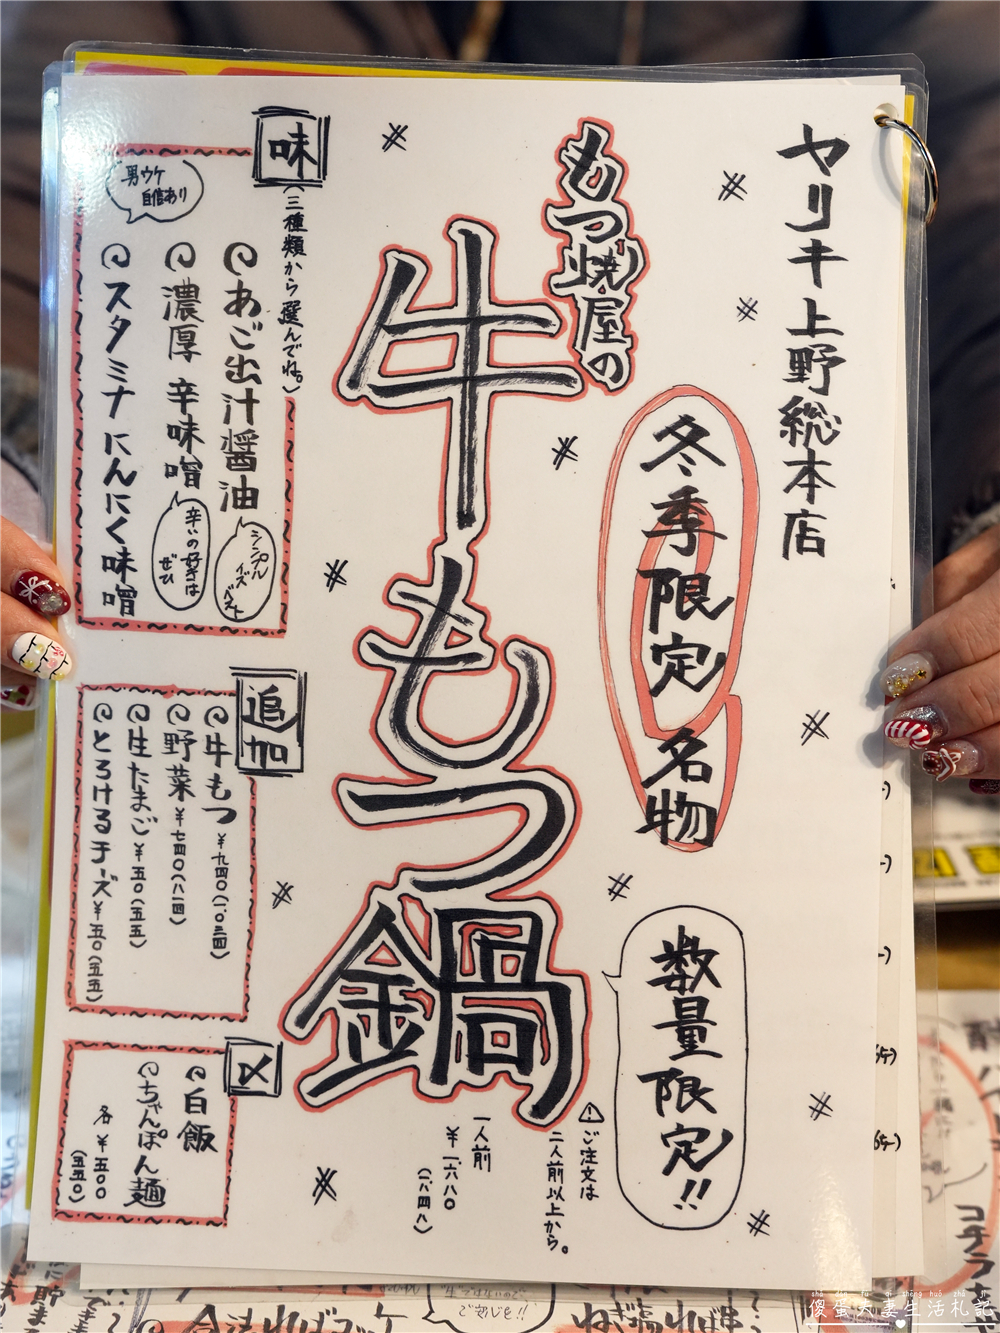 ヤリキ上野総本店
冬季限定名物
数量限定!!
もつ焼屋の
牛もつ鍋
ご注文は
二人前以上から。
一人前
¥一六八〇
(一八四八)
味
(三種類から選んでね。)
あご出汁醤油
シンプル
イズ
ベスト
濃厚辛味噌
辛いの好きは
ぜひ
スタミナにんにく味噌
男ウケ
自信あり
追加
牛もつ ¥九四〇(一〇三四)
野菜 ¥七四〇(八一四)
生たまご ¥五〇(五五)
とろけるチーズ ¥五〇(五五)
〆
白飯
ちゃんぽん麺
各¥五〇〇
(五五〇)
コチラ
shǎ dàn fū qī shēng huó zhá jì
傻蛋夫妻生活札記